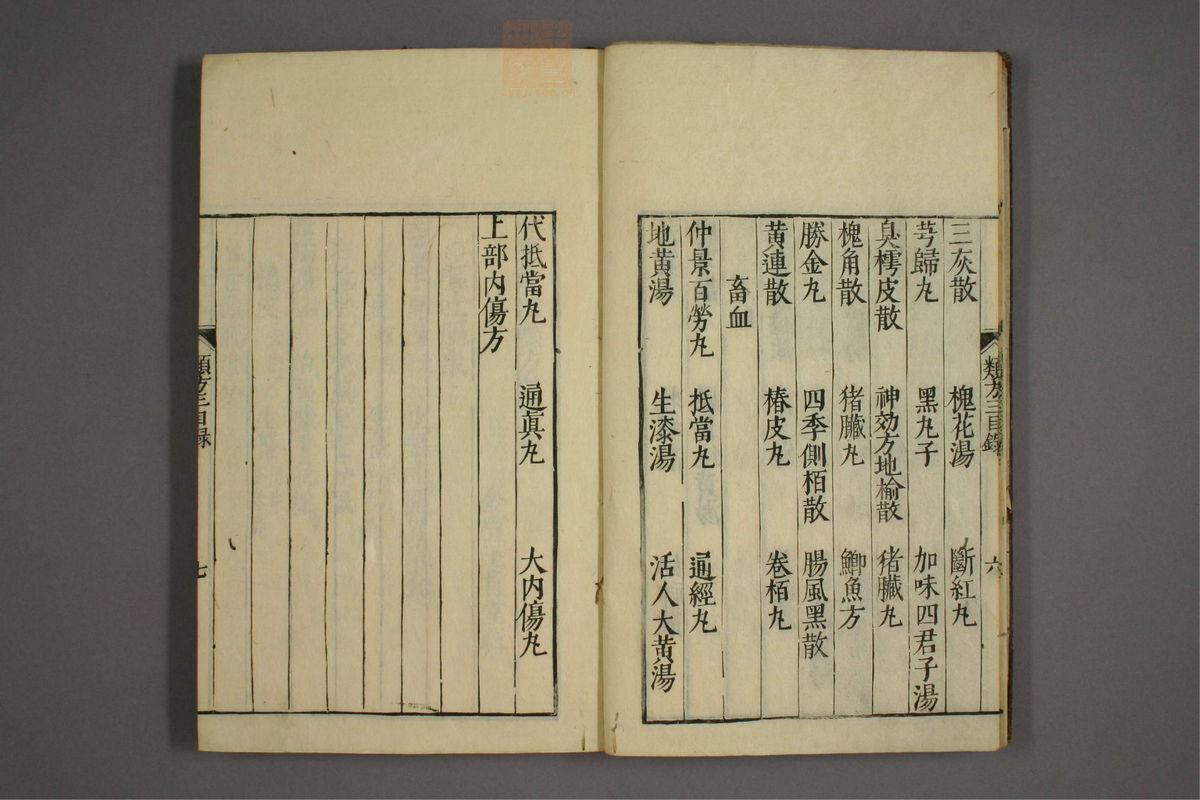 三灰散 槐花湯 斷紅丸
芎歸丸 黑丸子 加味四君子湯
臭樗皮散 神効方地榆散 猪臟丸
槐角散 猪臟丸 鯽魚方
勝金丸 四季側栢散 腸風黑散
黃連散 椿皮丸 卷栢丸
畜血
仲景百勞丸 抵當丸 通經丸
地黃湯 生漆湯 活人大黃湯
類方三目錄 六
代抵當丸 通眞丸 大內傷丸
上部內傷方
類方三目録 七